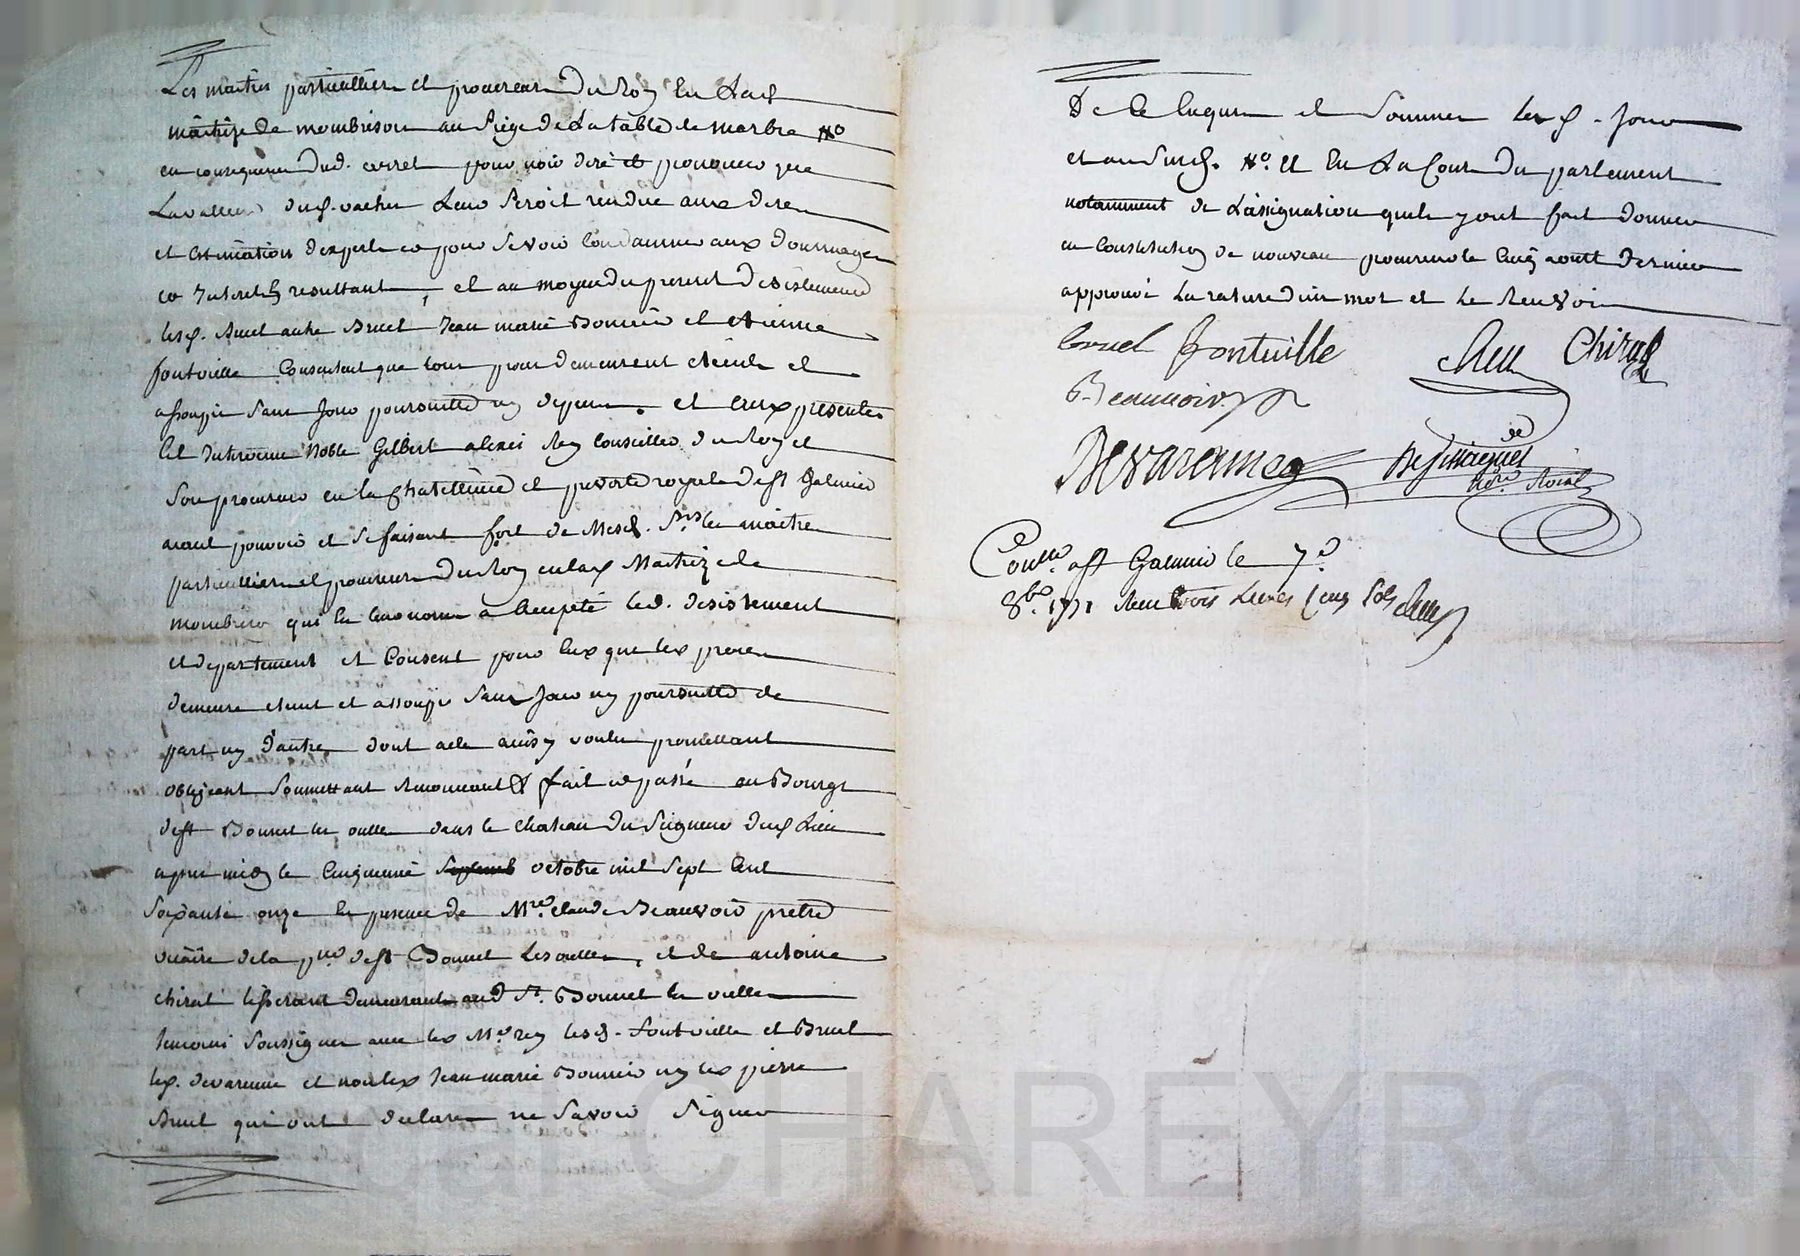 Les maitres particulliers et procureur du Roy En lad
maitrize de mombrison au siege de La table de marbre #o
en consequence dud. pour voir dire et prononcer que
La valleur dud. vacher Leur seroit rendue aux dires
et estimation d'experts et pour se voir Condamner aux dommages
et Interets resultants, et au moyen du present desistement
lesd. Bruel autre Bruel Jean marie Bonnier et etienne
fontvielle Consentent que tout pour demeurent eteints et
assoupis sans poursuitte ny depens. et aux presentes
Est intervenu Noble Gilbert alexis Rey Conseiller du Roy et
son procureur en la Chatellenie et prevoté royale de st Galmier
ayant pouvoir et se faisant fort de Mesd. Srs les maitre
particulliers et procureur du Roy en lad Maitrize de
mombrison qui En leur nom a accepté led. desistement
et departement et Consent pour Eux que les proces
demeure eteint et assoupi sans poursuitte de
part ny d'autre dont acte ainsy voulu promettant
obligeant soummettant renonceant & fait et passé au Bourgt
de st Bonnet les oulles dans le chateau du seigneur dud Lieu
apres midy le Cinquieme octobre mil sept Cent
soixante onze En presence de Mre. claude Beauvoir pretre
vicaire de la psse de st Bonnet Les oulles, et de antoine
chirat tisserant demeurant aud St. Bonnet les oulles
temoins soussignes avec led Mre rey lesd. fontvielle et Bruel
led. devarenne et non led Jean marie Bonnier ny led pierre
Bruel qui ont declare ne savoir signer
De Ce Enquis et sommes lesd.
et au surd. #o. et En La Cour du parlement
notamment de L'assignation quels y ont fait donner
en Constitution de nouveau procureur le Cinq aoutt dernier
approuvé La rature d'un mot et le Renvoi
Bruel fontvielle Rey Chirat
Beauvoir
Devarenne
Nore Roial
Conlle. a st Galmier le 7e
8bre. 1771 Reçu trois Livres Cinq sols
CHAREYRON